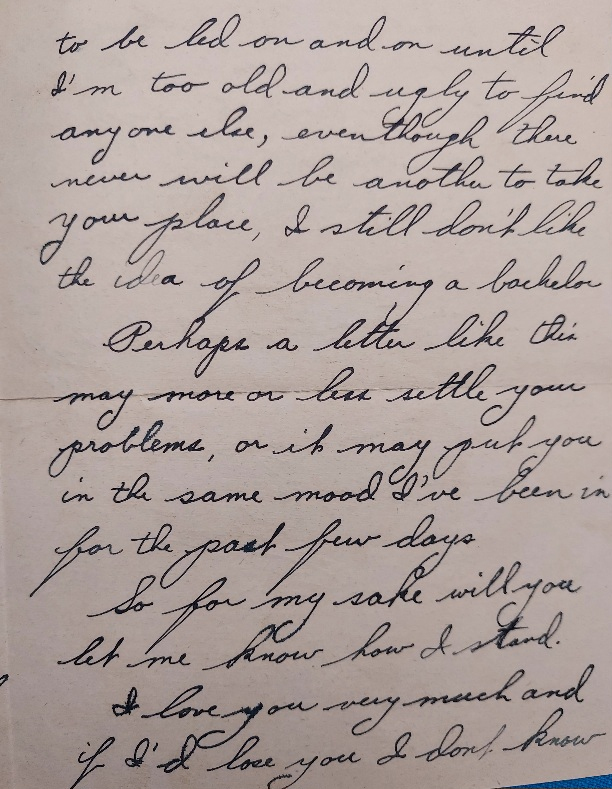 to be led on and on until
I'm too old and ugly to find
anyone else, eventhough there
never will be another to take
your place, I still don't like
the idea of becoming a bachelor
Perhaps a letter like this
may more or less settle your
problems, or it may put you
in the same mood I've been in
for the past few days
So for my sake will you
let me know how I stand.
I love you very much and
if I'd lose you I dont know